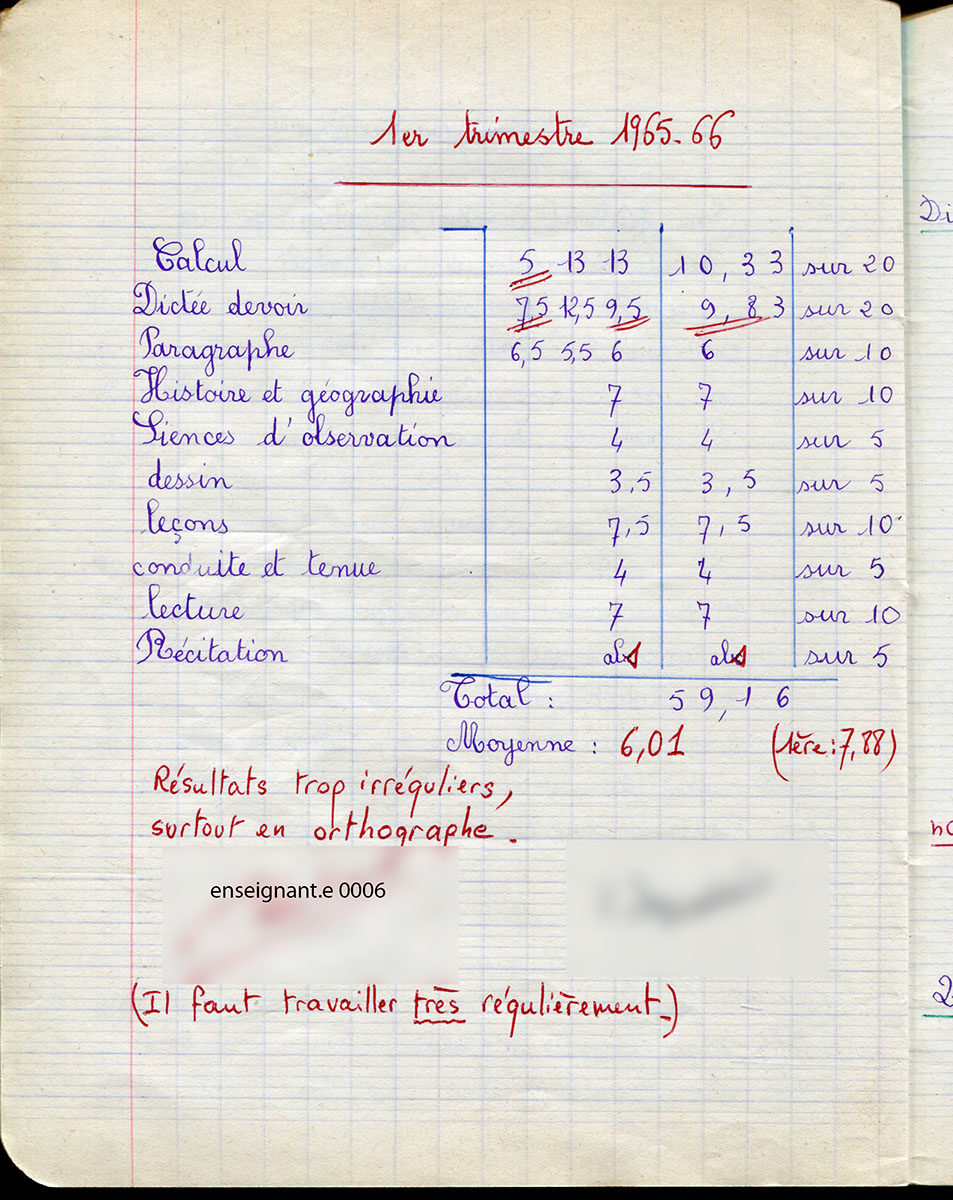 1er trimestre 1965-66
Di
Calcul 5 13 13 10,33 sur 20
Dictée devoir 7,5 12,5 9,5 9,83 sur 20
Paragraphe 6,5 5,5 6 6 sur 10
Histoire et géographie 7 7 sur 10
Siences d'observation 4 4 sur 5
dessin 3,5 3,5 sur 5
leçons 7,5 7,5 sur 10
conduite et tenue 4 4 sur 5
lecture 7 7 sur 10
Récitation abs abs sur 5
Total : 59,16
Moyenne : 6,01 (1ère : 7,88)
Résultats trop irréguliers,
surtout en orthographe.
enseignant.e 0006
(Il faut travailler très régulièrement.)